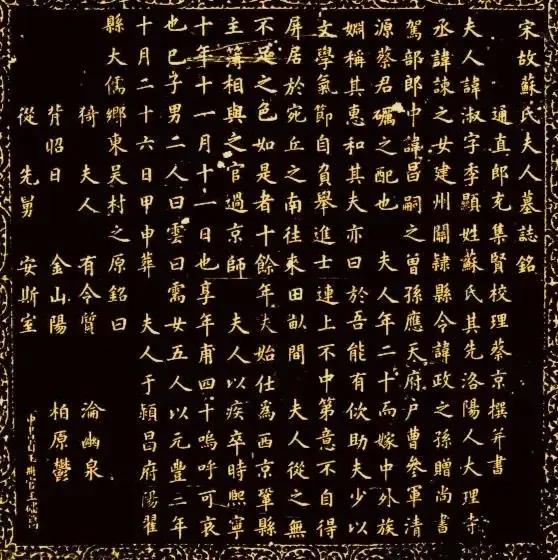 宋故蘇氏夫人墓誌銘
通直郎充集賢校理蔡京撰并書
夫人諱淑字季顯姓蘇氏其先洛陽人大理寺
丞諱諫之女建州關隸縣令諱政之孫贈尚書
駕部郎中諱昌嗣之曾孫應天府戶曹參軍清
源蔡君礪之配也 夫人年二十而嫁中外族
婣稱其惠和其夫亦曰於吾能有佽助夫少以
文學氣節自負舉進士連上不中第意不自得
屏居於宛丘之南往來田畝間 夫人從之無
不足之色如是者十餘年夫始仕為西京鞏縣
主簿相與之官過京師 夫人以疾卒時熙寧
十年十一月十一日也享年甫四十嗚呼可哀
也已子男二人曰雲曰霱女五人以元豐二年
十月二十六日甲申葬 夫人于潁昌府陽翟
縣大儒鄉東吳村之原銘曰
猗 夫人 有令質 淪幽泉
背昭日 金山陽 柏原鬱
從先舅 安斯室